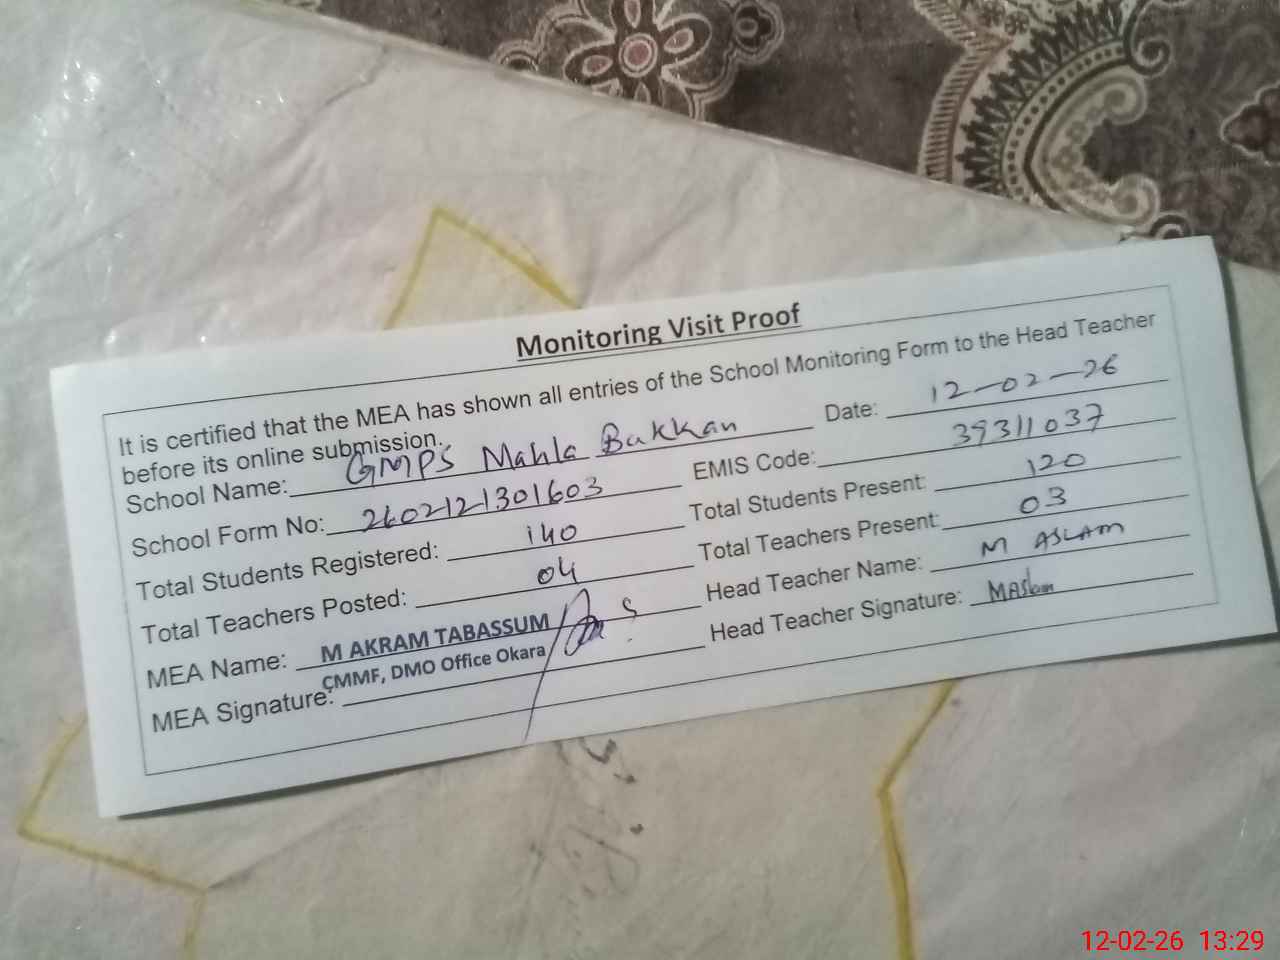 Monitoring Visit Proof
It is certified that the MEA has shown all entries of the School Monitoring Form to the Head Teacher
before its online submission.
School Name: GMPS Mahla Bukkan Date: 12-02-26
School Form No: 2602121301603 EMIS Code: 39311037
Total Students Registered: 140 Total Students Present: 120
Total Teachers Posted: 04 Total Teachers Present: 03
MEA Name: M AKRAM TABASSUM Head Teacher Name: M ASLAM
CMMF, DMO Office Okara
MEA Signature: Head Teacher Signature: MAslam
12-02-26 13:29